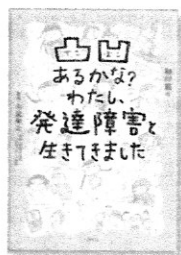 凸凹
あるかな？
わたし、
発達障害と
生きてきました